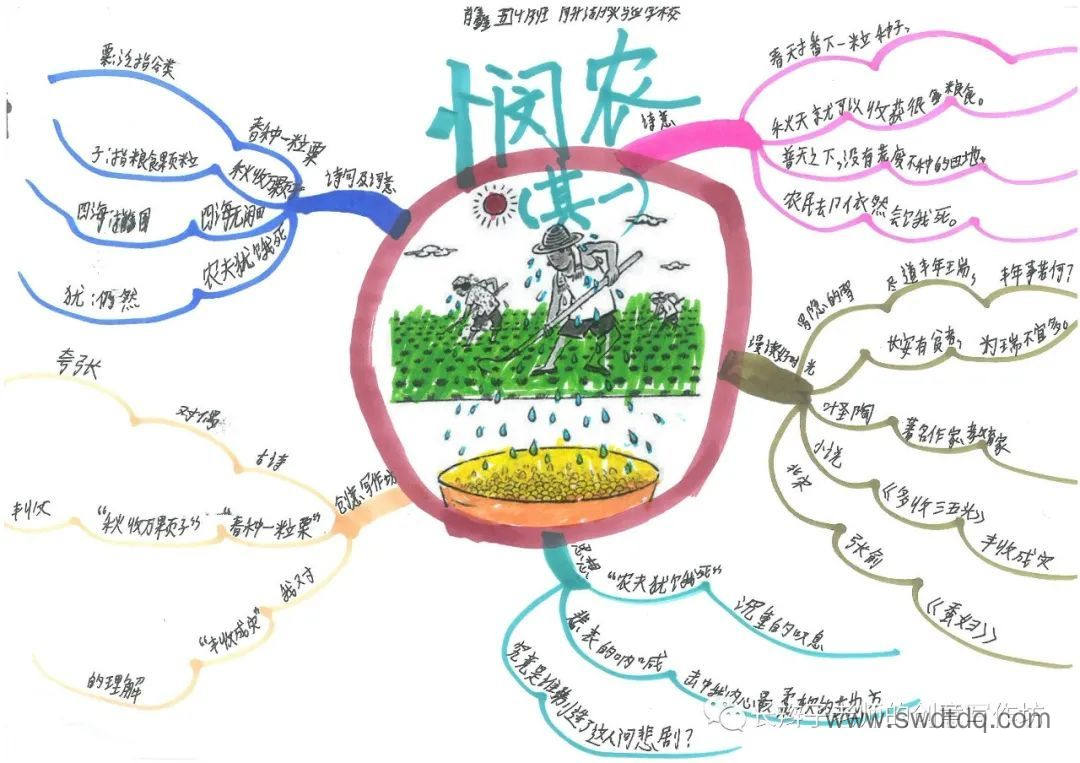 五4班
悯农
(其一)
诗意
春天播下一粒种子,
秋天就可以收获很多粮食。
普天之下,没有荒废不种的田地,
农民却依然会饿死。
诗句及词意
春种一粒粟
粟:泛指谷类
秋收万颗子
子:指粮食颗粒
四海无闲田
四海:指国
农夫犹饿死
犹:仍然
漫读好时光
罗隐的雪
尽道丰年瑞,
丰年事若何?
长安有贫者,
为瑞不宜多。
叶圣陶
著名作家、教育家
小说
《多收了三五斗》
丰收成灾
北宋
张俞
《蚕妇》
创意写作坊
古诗
对偶
夸张
“春种一粒粟”
“秋收万颗子”
丰收
我对
“丰收成灾”
的理解
思想
“农夫犹饿死”
沉重的叹息
悲哀的呐喊
击中我内心最柔软的地方
究竟是谁制造了这人间悲剧?
www.swdtdq.com